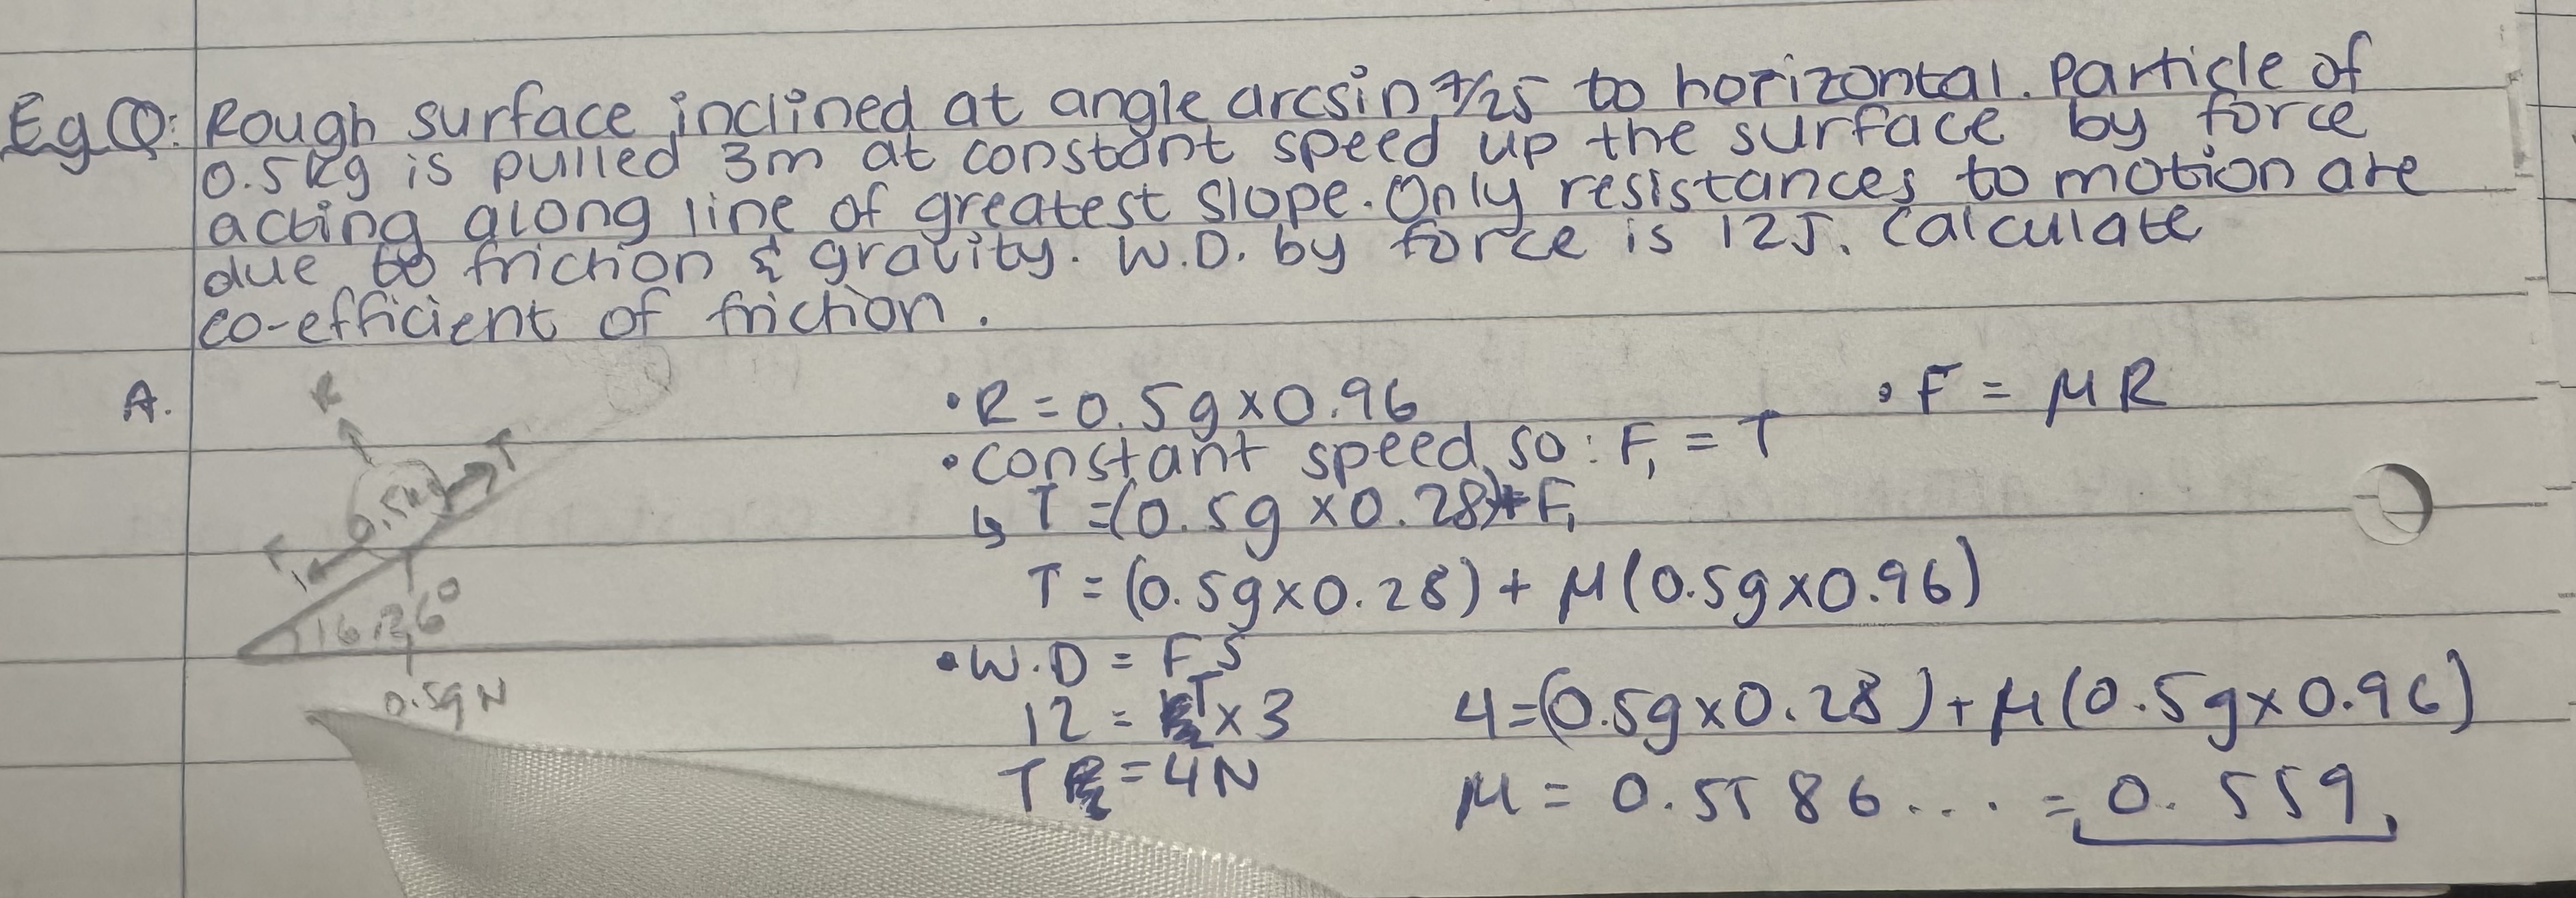 Eg Q: Rough surface inclined at angle arcsin 7/25 to horizontal. Particle of
0.5kg is pulled 3m at constant speed up the surface by force
acting along line of greatest slope. Only resistances to motion are
due to friction & gravity. W.D. by force is 12J. Calculate
co-efficient of friction.
A.
R
T
0.5kg
F₁
16.26°
0.5gN
• R = 0.5g × 0.96
• F = μR
• constant speed, so: F₁ = T
↳ T = (0.5g × 0.28) + F₁
T = (0.5g × 0.28) + μ(0.5g × 0.96)
• W.D = FS
12 = T × 3
T = 4N
4 = (0.5g × 0.28) + μ(0.5g × 0.96)
μ = 0.5586... = 0.559